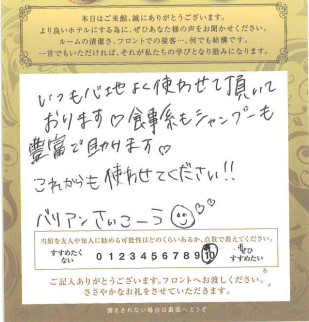 本日はご来館、誠にありがとうございます。
より良いホテルにする為に、ぜひあなた様の声をお聞かせください。
ルームの清潔さ、フロントでの接客…、何でも結構です。
一言でもいただければ、それが私たちの学びとなり励みになります。
いつも心地よく使わせて頂いて
おります♡食事系もシャンプーも
豊富で助けます♡
これからも使わせてください!!
バリアンさいこーう
当館を友人や知人に勧める可能性はどのくらいあるか、点数で教えてください。
すすめたくない 0 1 2 3 4 5 6 7 8 9 10 ぜひすすめたい
ご記入ありがとうございます。フロントへお渡しください。
ささやかなお礼をさせていただきます。
書ききれない場合は裏面へどうぞ